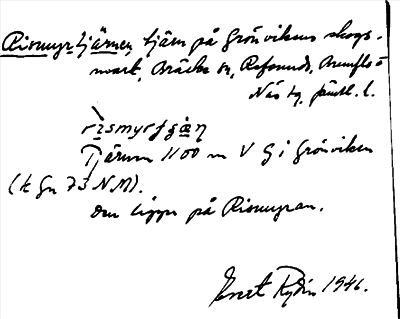 Rismyrtjärnen, tjärn på Grönvikens skogs-
mark, Bräcke sn, Refsunds, Brunflo o
Näs tg, Jämtl. l.
rismyrtjärn
Tjärnen 1100 m V G i Grönviken
(k Gn 73 NM).
Den ligger på Rismyran.
Ernst Rydin 1946.